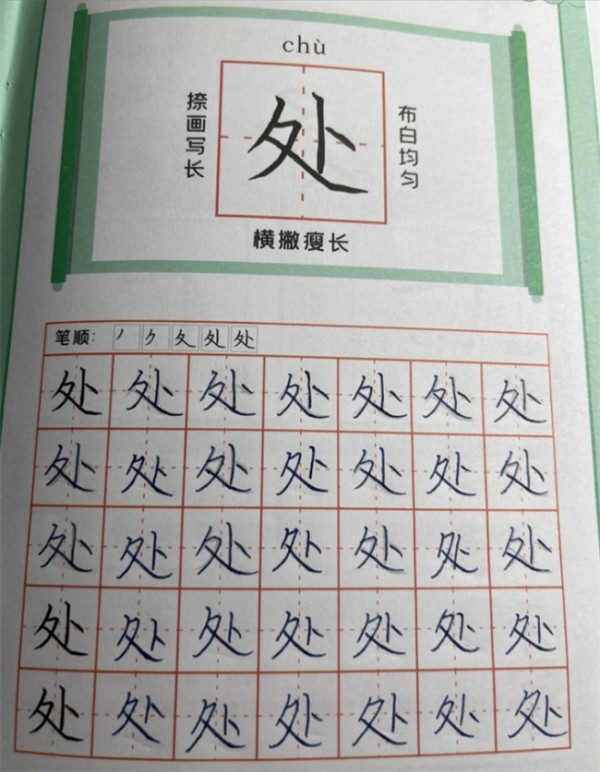 chù
处
捺画写长
布白均匀
横撇瘦长
笔顺: 丿 ク 夂 处 处
处 处 处 处 处 处 处
处 处 处 处 处 处 处
处 处 处 处 处 处 处
处 处 处 处 处 处 处
处 处 处 处 处 处 处